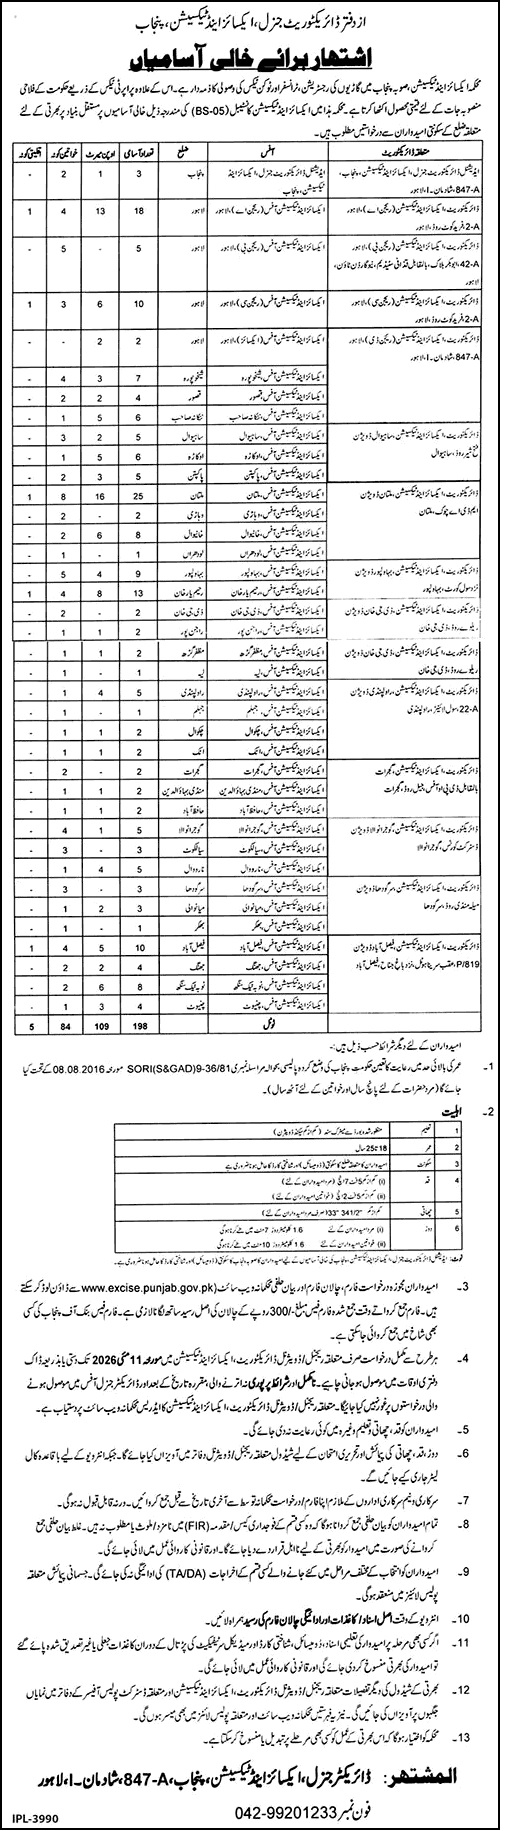 از دفتر ڈائریکٹوریٹ جنرل، ایکسائز اینڈ ٹیکسیشن، پنجاب
اشتہار برائے خالی آسامیاں
محکمہ ایکسائز اینڈ ٹیکسیشن، صوبہ پنجاب میں گاڑیوں کی رجسٹریشن، ٹرانسفر اور ٹوکن ٹیکس کی وصولی کا ذمہ دار ہے۔ اس کے علاوہ پراپرٹی ٹیکس کے ذریعے حکومت کے فلاحی
منصوبہ جات کے لئے قیمتی محصول اکٹھا کرتا ہے۔ محکمہ ہذا میں ایکسائز اینڈ ٹیکسیشن کانسٹیبل (BS-05) کی مندرجہ ذیل خالی آسامیوں پر مستقل بنیاد پر بھرتی کے لئے
متعلقہ ضلع کے سکونتی امیدواران سے درخواستیں مطلوب ہیں۔
متعلقہ ڈائریکٹوریٹ آفس ضلع تعداد آسامی اوپن میرٹ خواتین کوٹہ اقلیتی کوٹہ
ایڈیشنل ڈائریکٹوریٹ جنرل، ایکسائز اینڈ ٹیکسیشن، پنجاب، 847-A، شادمان-I، لاہور ایڈیشنل ڈائریکٹوریٹ جنرل، ایکسائز اینڈ ٹیکسیشن، پنجاب پنجاب 3 1 2 -
ڈائریکٹوریٹ، ایکسائز اینڈ ٹیکسیشن (ریجن اے)، لاہور 2-A، فرید کوٹ روڈ، لاہور ایکسائز اینڈ ٹیکسیشن آفس (ریجن اے)، لاہور لاہور 18 13 4 1
ڈائریکٹوریٹ، ایکسائز اینڈ ٹیکسیشن (ریجن بی)، لاہور 42-A، ابوبکر بلاک، بالمقابل قذافی سٹیڈیم، نیو گارڈن ٹاؤن، لاہور ایکسائز اینڈ ٹیکسیشن آفس (ریجن بی)، لاہور لاہور 5 - 5 -
ڈائریکٹوریٹ، ایکسائز اینڈ ٹیکسیشن (ریجن سی)، لاہور 2-A، فرید کوٹ روڈ، لاہور ایکسائز اینڈ ٹیکسیشن آفس (ریجن سی)، لاہور لاہور 10 6 3 1
ڈائریکٹوریٹ، ایکسائز اینڈ ٹیکسیشن (ریجن ڈی)، لاہور 847-A، شادمان-I، لاہور ایکسائز اینڈ ٹیکسیشن آفس (ایکسائز)، لاہور لاہور 2 2 - -
ایکسائز اینڈ ٹیکسیشن آفس، شیخوپورہ شیخوپورہ 7 3 4 -
ایکسائز اینڈ ٹیکسیشن آفس، قصور قصور 4 2 2 -
ایکسائز اینڈ ٹیکسیشن آفس، ننکانہ صاحب ننکانہ صاحب 6 5 1 -
ڈائریکٹوریٹ، ایکسائز اینڈ ٹیکسیشن، ساہیوال ڈویژن فتح شیر روڈ، ساہیوال ایکسائز اینڈ ٹیکسیشن آفس، ساہیوال ساہیوال 5 2 3 -
ایکسائز اینڈ ٹیکسیشن آفس، اوکاڑہ اوکاڑہ 6 5 1 -
ایکسائز اینڈ ٹیکسیشن آفس، پاکپتن پاکپتن 5 3 2 -
ڈائریکٹوریٹ، ایکسائز اینڈ ٹیکسیشن، ملتان ڈویژن ایم ڈی اے چوک، ملتان ایکسائز اینڈ ٹیکسیشن آفس، ملتان ملتان 25 16 8 1
ایکسائز اینڈ ٹیکسیشن آفس، وہاڑی وہاڑی 2 - 2 -
ایکسائز اینڈ ٹیکسیشن آفس، خانیوال خانیوال 8 6 2 -
ایکسائز اینڈ ٹیکسیشن آفس، لودھراں لودھراں 1 - 1 -
ڈائریکٹوریٹ، ایکسائز اینڈ ٹیکسیشن، بہاولپور ڈویژن نزد سول کورٹ، بہاولپور ایکسائز اینڈ ٹیکسیشن آفس، بہاولپور بہاولپور 9 4 5 -
ایکسائز اینڈ ٹیکسیشن آفس، رحیم یار خان رحیم یار خان 13 8 4 1
ڈائریکٹوریٹ، ایکسائز اینڈ ٹیکسیشن، ڈی جی خان ڈویژن ریلوے روڈ، ڈی جی خان ایکسائز اینڈ ٹیکسیشن آفس، ڈی جی خان ڈی جی خان 2 - 2 -
ایکسائز اینڈ ٹیکسیشن آفس، راجن پور راجن پور 2 1 1 -
ڈائریکٹوریٹ، ایکسائز اینڈ ٹیکسیشن، ڈی جی خان ڈویژن ریلوے روڈ، ڈی جی خان ایکسائز اینڈ ٹیکسیشن آفس، مظفر گڑھ مظفر گڑھ 2 1 1 -
ایکسائز اینڈ ٹیکسیشن آفس، لیہ لیہ 1 - 1 -
ڈائریکٹوریٹ، ایکسائز اینڈ ٹیکسیشن، راولپنڈی ڈویژن 22-A، سول لائنز، راولپنڈی ایکسائز اینڈ ٹیکسیشن آفس، راولپنڈی راولپنڈی 5 4 1 -
ایکسائز اینڈ ٹیکسیشن آفس، جہلم جہلم 1 - 1 -
ایکسائز اینڈ ٹیکسیشن آفس، چکوال چکوال 2 1 1 -
ایکسائز اینڈ ٹیکسیشن آفس، اٹک اٹک 2 1 1 -
ڈائریکٹوریٹ، ایکسائز اینڈ ٹیکسیشن، گجرات بالمقابل ڈی پی او آفس، جیل روڈ، گجرات ایکسائز اینڈ ٹیکسیشن آفس، گجرات گجرات 2 - 2 -
ایکسائز اینڈ ٹیکسیشن آفس، منڈی بہاؤالدین منڈی بہاؤالدین 2 1 1 -
ایکسائز اینڈ ٹیکسیشن آفس، حافظ آباد حافظ آباد 2 1 1 -
ڈائریکٹوریٹ، ایکسائز اینڈ ٹیکسیشن، گوجرانوالا ڈویژن ڈسٹرکٹ کورٹس، گوجرانوالا ایکسائز اینڈ ٹیکسیشن آفس، گوجرانوالا گوجرانوالا 5 1 4 -
ایکسائز اینڈ ٹیکسیشن آفس، سیالکوٹ سیالکوٹ 3 - 3 -
ایکسائز اینڈ ٹیکسیشن آفس، نارووال نارووال 5 4 1 -
ڈائریکٹوریٹ، ایکسائز اینڈ ٹیکسیشن، سرگودھا ڈویژن میلہ منڈی روڈ، سرگودھا ایکسائز اینڈ ٹیکسیشن آفس، سرگودھا سرگودھا 3 - 3 -
ایکسائز اینڈ ٹیکسیشن آفس، میانوالی میانوالی 3 2 1 -
ایکسائز اینڈ ٹیکسیشن آفس، بھکر بھکر 1 - 1 -
ڈائریکٹوریٹ، ایکسائز اینڈ ٹیکسیشن، فیصل آباد ڈویژن P/819، عقب سرینا ہوٹل، نزد باغ جناح، فیصل آباد ایکسائز اینڈ ٹیکسیشن آفس، فیصل آباد فیصل آباد 10 5 4 1
ایکسائز اینڈ ٹیکسیشن آفس، جھنگ جھنگ 4 2 2 -
ایکسائز اینڈ ٹیکسیشن آفس، ٹوبہ ٹیک سنگھ ٹوبہ ٹیک سنگھ 8 6 2 -
ایکسائز اینڈ ٹیکسیشن آفس، چنیوٹ چنیوٹ 4 3 1 -
ٹوٹل 198 109 84 5
امیدواران کے لئے دیگر شرائط حسب ذیل ہیں:
1- عمر کی بالائی حد میں رعایت کا تعین حکومت پنجاب کی وضع کردہ پالیسی بحوالہ مراسلہ نمبری SORI(S&GAD)9-36/81 مورخہ 08.08.2016 کے تحت کیا
جائے گا (مرد حضرات کے لئے پانچ سال اور خواتین کے لئے آٹھ سال)۔
2- اہلیت
1 تعلیم منظور شدہ بورڈ سے میٹرک سند (کم از کم سیکنڈ ڈویژن)
2 عمر 18 تا 25 سال
3 سکونت امیدواران کا متعلقہ ضلع کا سکونتی (ڈومیسائل)، اور شناختی کارڈ کا حامل ہونا ضروری ہے
4 قد (i) کم از کم 5 فٹ 7 انچ (مرد امیدواران کے لئے)
(ii) کم از کم 5 فٹ 2 انچ (خواتین امیدواران کے لئے)
5 چھاتی کم از کم "33" 341/2 (صرف مرد امیدواران کے لئے)
6 دوڑ (i) مرد امیدواران کے لئے 1.6 کلومیٹر دوڑ 7 منٹ میں طے کرنا ہوگی
(ii) خواتین امیدواران کے لئے 1.6 کلومیٹر دوڑ 10 منٹ میں طے کرنا ہوگی
نوٹ: ایڈیشنل ڈائریکٹوریٹ جنرل، ایکسائز اینڈ ٹیکسیشن، پنجاب کی خالی آسامیوں کے لئے امیدواران کا صوبہ پنجاب کا سکونتی (ڈومیسائل)، اور شناختی کارڈ کا حامل ہونا ضروری ہے۔
3- امیدواران مجوزہ درخواست فارم، چالان فارم اور بیان حلفی محکمانہ ویب سائٹ (www.excise.punjab.gov.pk) سے ڈاؤن لوڈ کر سکتے
ہیں۔ فارم جمع کرواتے وقت جمع شدہ فارم فیس مبلغ -/300 روپے کے چالان کی اصل رسید ساتھ لگانا لازمی ہے۔ فارم فیس بنک آف پنجاب کی کسی
بھی شاخ میں جمع کروائی جا سکتی ہے۔
4- ہر طرح سے مکمل درخواست صرف متعلقہ ریجنل/ڈویژنل ڈائریکٹوریٹ، ایکسائز اینڈ ٹیکسیشن میں مورخہ 11 مئی 2026 تک دستی یا بذریعہ ڈاک
دفتری اوقات میں موصول ہو جانی چاہیے۔ نامکمل اور شرائط پر پوری نہ اترنے والی، مقررہ تاریخ کے بعد اور ڈائریکٹر جنرل آفس میں موصول ہونے
والی درخواستوں پر غور نہیں کیا جائیگا۔ متعلقہ ریجنل/ڈویژنل ڈائریکٹوریٹ، ایکسائز اینڈ ٹیکسیشن کا ایڈریس محکمانہ ویب سائٹ پر دستیاب ہے۔
5- امیدواران کو قد، چھاتی، تعلیم وغیرہ میں کوئی رعایت نہ دی جائے گی۔
6- دوڑ، قد، چھاتی کی پیمائش اور تحریری امتحان کے لیے شیڈول متعلقہ ریجنل/ڈویژنل دفاتر میں آویزاں کیا جائے گا۔ جبکہ انٹرویو کے لیے باقاعدہ کال
لیٹر جاری کیے جائیں گے۔
7- سرکاری و نیم سرکاری اداروں کے ملازم اپنا فارم/درخواست محکمانہ توسط سے آخری تاریخ سے قبل جمع کروائیں۔ ورنہ قابل قبول نہ ہوگی۔
8- تمام امیدواران کو بیان حلفی جمع کروانا ہوگا کہ وہ کسی قسم کے فوجداری کیس/مقدمہ (FIR) میں نامزد/ملوث یا مطلوب نہ ہیں۔ غلط بیان حلفی جمع
کروانے کی صورت میں امیدوار کو بھرتی کے لیے نااہل قرار دے دیا جائے گا۔ اور قانونی کاروائی عمل میں لائی جائے گی۔
9- امیدواران کو انتخاب کے مختلف مراحل میں کئے جانے والے کسی قسم کے اخراجات (TA/DA) کی ادائیگی نہ کی جائے گی۔ جسمانی پیمائش متعلقہ
پولیس لائنز میں منعقد ہوگی۔
10- انٹرویو کے وقت اصل اسناد/کاغذات اور ادائیگی چالان فارم کی رسید ہمراہ لائیں۔
11- اگر کسی بھی مرحلہ پر امیدوار کی تعلیمی اسناد، ڈومیسائل، شناختی کارڈ اور میڈیکل سرٹیفکیٹ کی پڑتال کے دوران کاغذات جعلی یا غیر تصدیق شدہ پائے گئے
تو امیدوار کی بھرتی منسوخ کر دی جائے گی اور قانونی کاروائی عمل میں لائی جائے گی۔
12- بھرتی کے شیڈول کی دیگر تفصیلات متعلقہ ریجنل/ڈویژنل ڈائریکٹوریٹ، ایکسائز اینڈ ٹیکسیشن اور متعلقہ ڈسٹرکٹ پولیس آفیسر کے دفاتر میں نمایاں
جگہوں پر آویزاں کی جائیں گی۔ نیز یہ فہرستیں محکمانہ ویب سائٹ اور متعلقہ پولیس لائنز میں بھی میسر ہوں گی۔
13- محکمہ کو اختیار ہوگا کہ اس بھرتی کے عمل کو کسی بھی مرحلے پر تبدیل یا منسوخ کر سکتا ہے۔
المشتھر: ڈائریکٹر جنرل، ایکسائز اینڈ ٹیکسیشن، پنجاب، 847-A، شادمان-I، لاہور
فون نمبر 042-99201233
IPL-3990